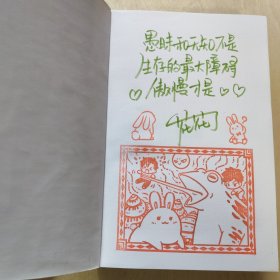 愚昧和无知不是
生存的最大障碍
♡傲慢才是♡♡